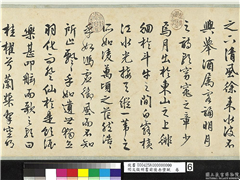 之下清風徐來水波不
興舉酒屬客誦明月
之詩歌窈窕之章少
焉月出於東山之上徘
徊於斗牛之間白露橫
江水光接天縱一葦之
所如凌萬頃之茫然浩
乎如馮虛御風而不知其
所止飄乎如遺世獨立
羽化而登仙於是飲酒
樂甚叩舷而歌之歌曰
桂棹兮蘭槳擊空明
6